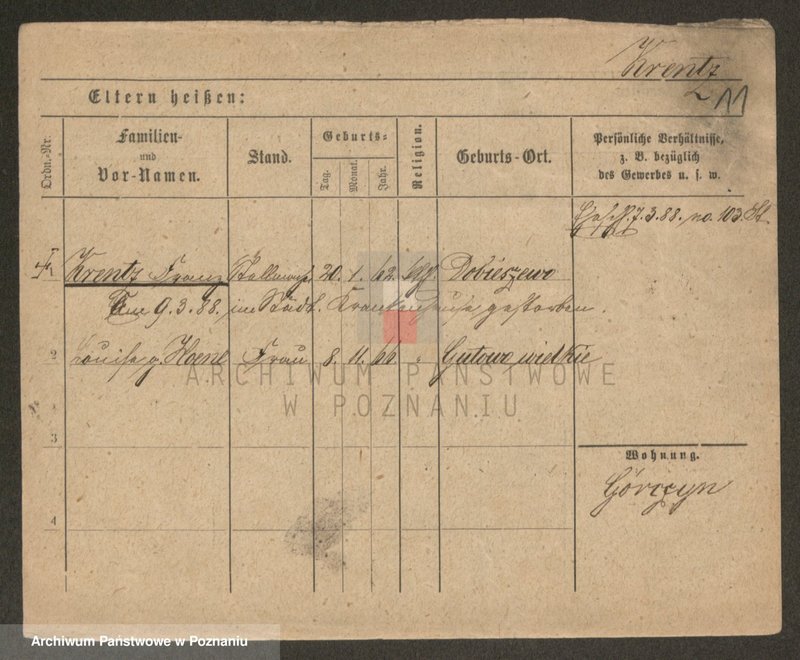 Krentz
Eltern heißen:
11
Ordn.-Nr.
Familien-
und
Vor-Namen.
Stand.
Geburts-
Tag.
Monat.
Jahr.
Religion.
Geburts-Ort.
Persönliche Verhältnisse,
z. B. bezüglich
des Gewerbes u. s. w.
7.3.88. no. 103
Krentz Franz 20. 1. 62. Dobieszewo
Am 9.3.88. im Städt. Krankenhause gestorben.
2 Louise g. Frau 8. 11. 66 " Gutowo wielkie
ARCHIWUM PAŃSTWOWE
W POZNANIU
3
Wohnung.
Górczyn
4
Archiwum Państwowe w Poznaniu